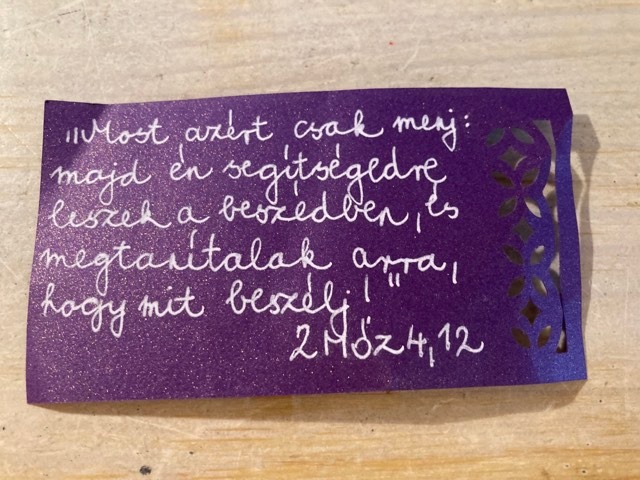 "Most azért csak menj:
majd én segítségedre
leszek a beszédben, és
megtanítalak arra,
hogy mit beszélj!"
2Móz 4,12